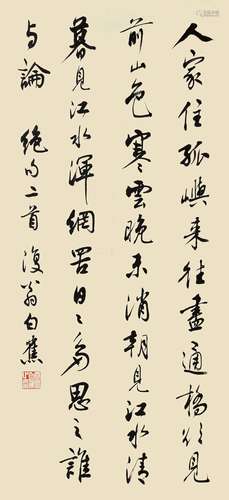 人家住孤嶼来往盡通橋欲見
前山色寒雲晚未消朝見江水清
暮見江水渾網罟日〻多思之誰
与論 絕句二首 復翁白蕉